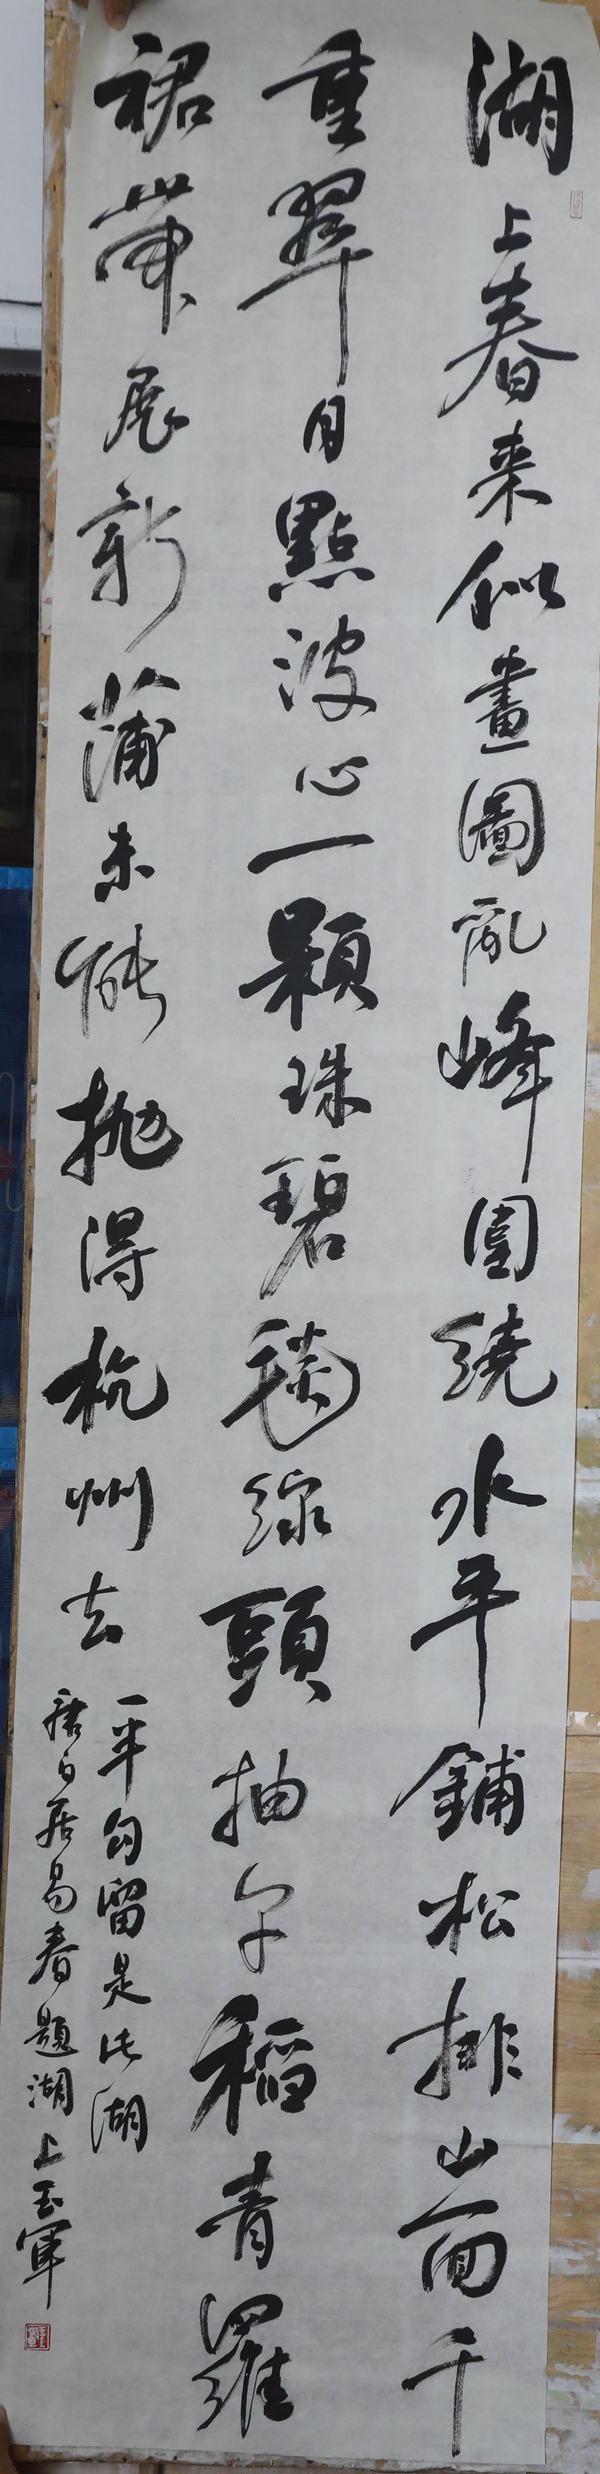 湖上春来似畫圖亂峰圍繞水平鋪松排山面千
重翠月點波心一顆珠碧毯線頭抽早稻青羅
裙帶展新蒲未能抛得杭州去
一半勾留是此湖
唐白居易春題湖上玉軍